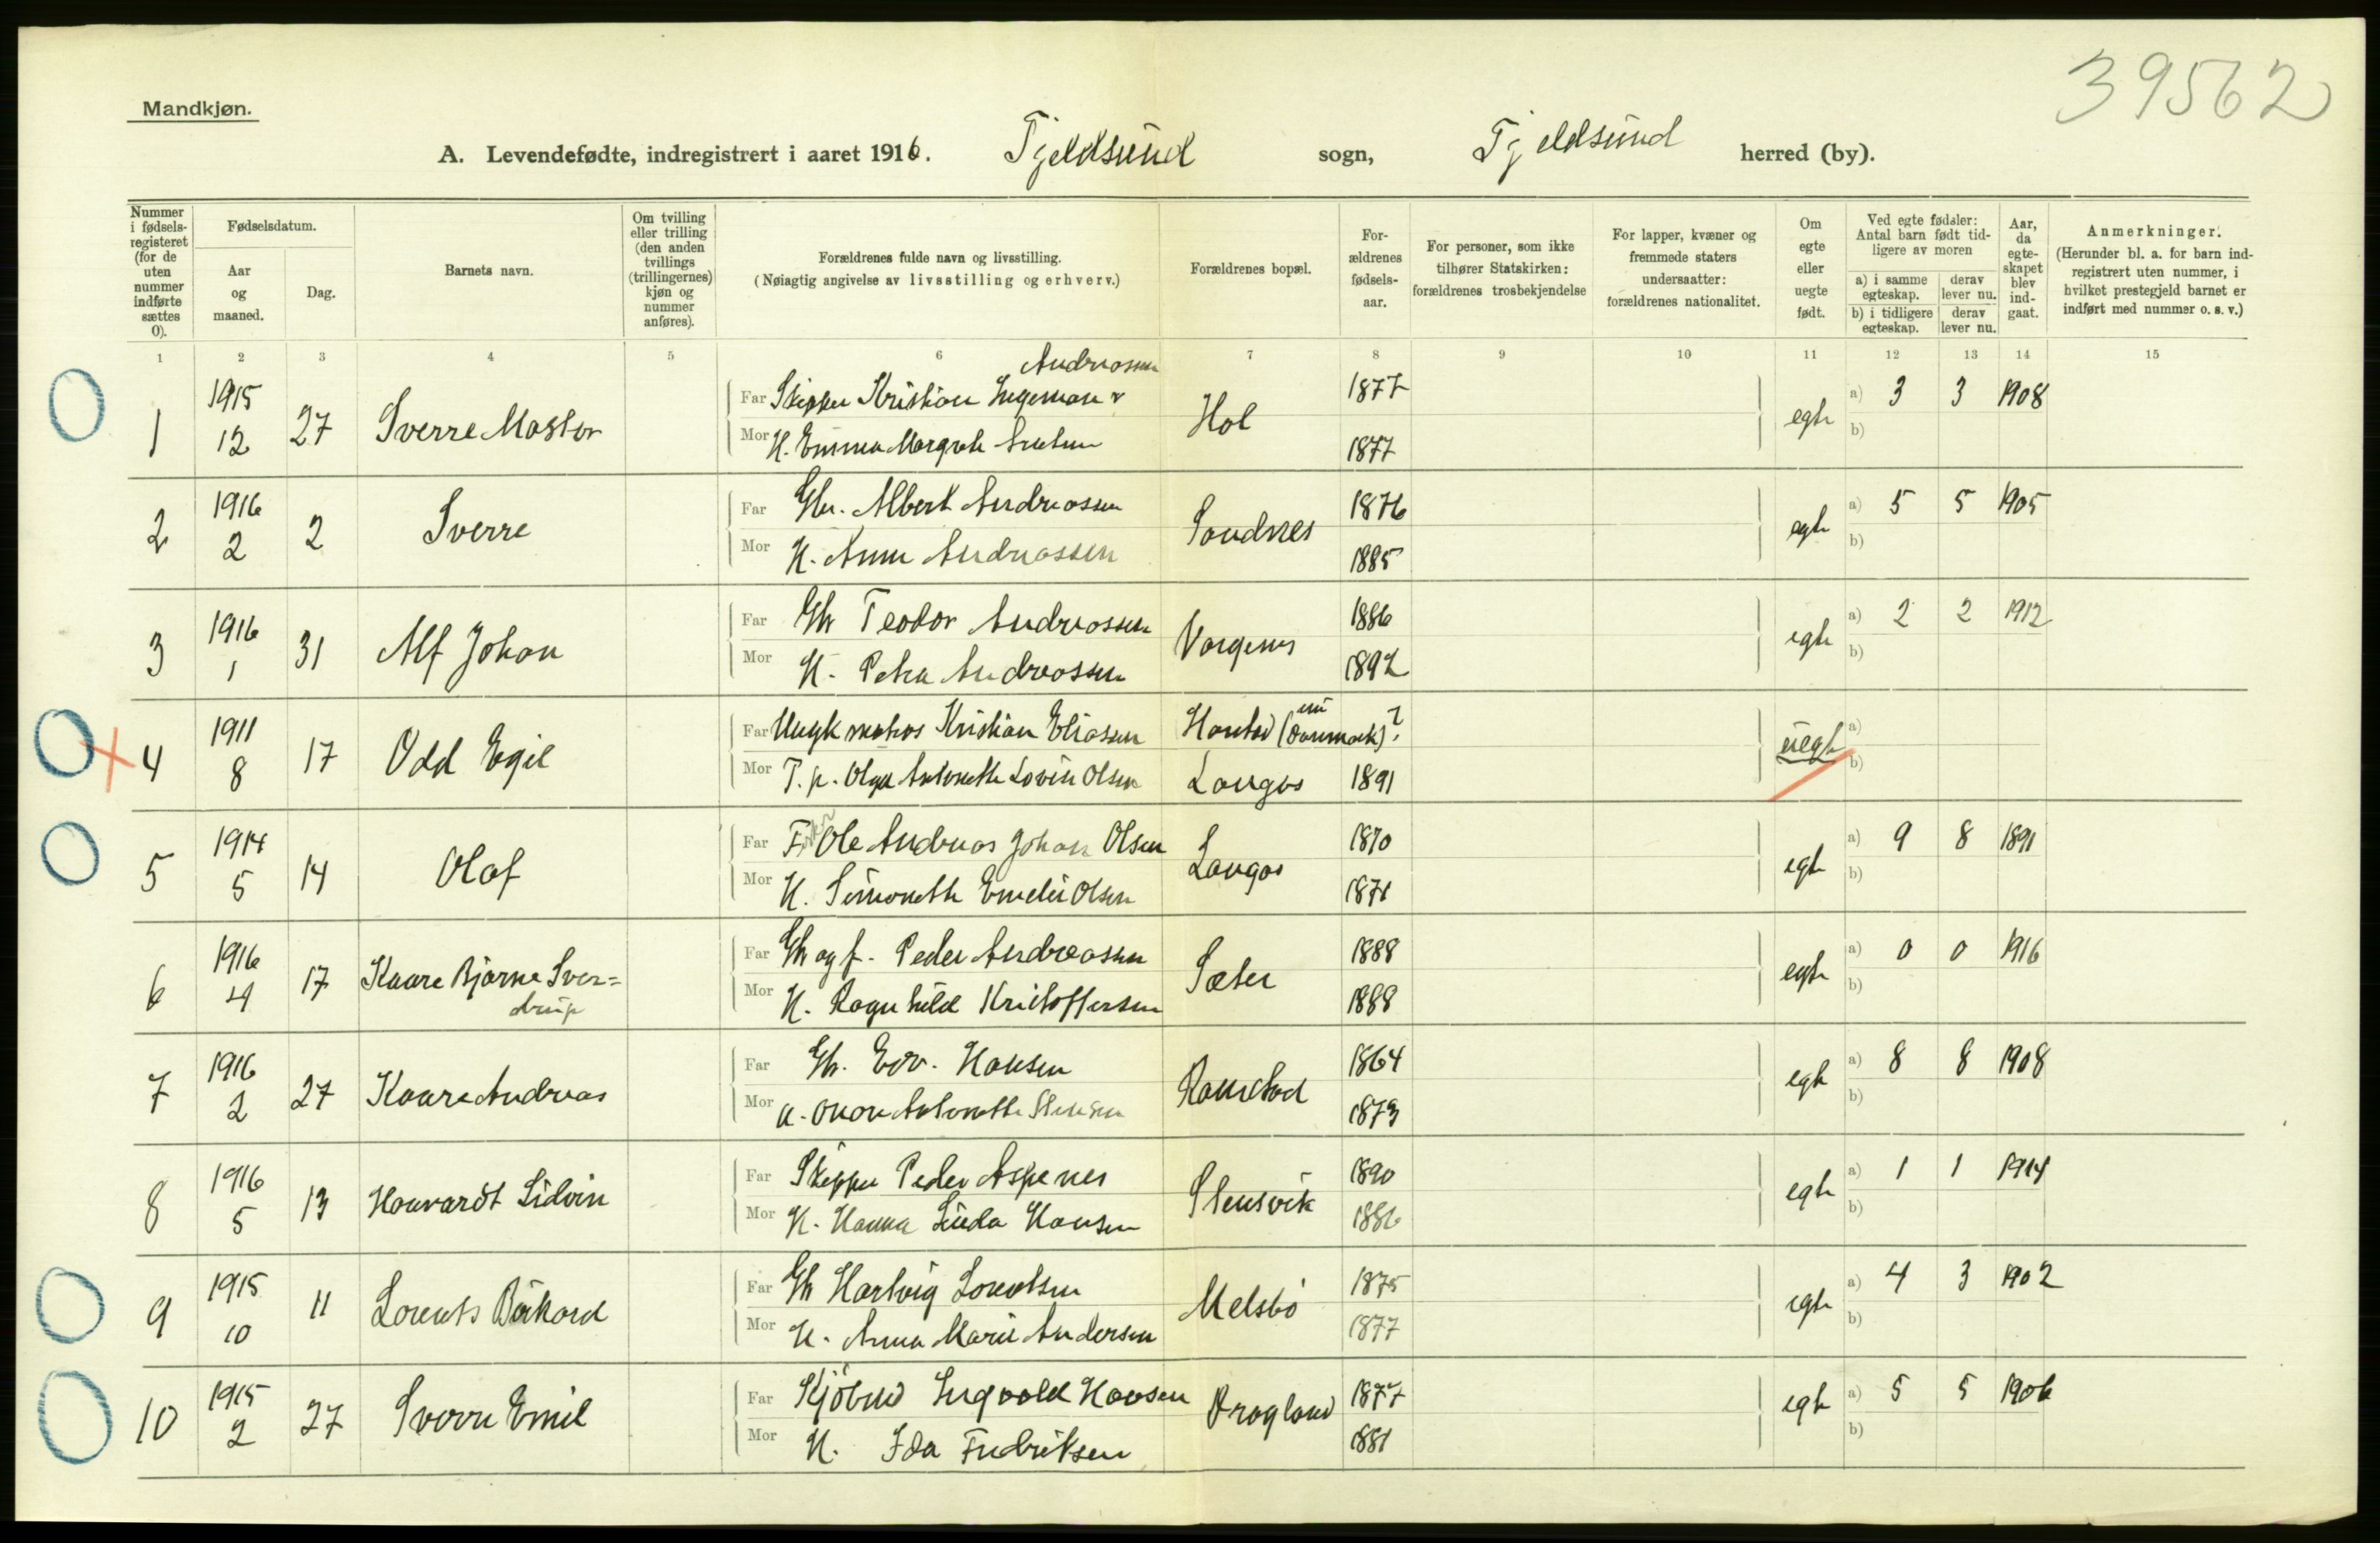 39562
Mandkjøn.
A. Levendefødte, indregistrert i aaret 1916. Tjeldsund sogn, Tjeldsund herred (by).
Nummer i fødselsregisteret (for de uten nummer indførte sættes 0).
Fødselsdatum.
Aar og maaned.
Dag.
Barnets navn.
Om tvilling eller trilling (den anden tvillings (trillingernes) kjøn og nummer anføres).
Forældrenes fulde navn og livsstilling.
(Nøiagtig angivelse av livsstilling og erhverv.)
Forældrenes bopæl.
Forældrenes fødselsaar.
For personer, som ikke tilhører Statskirken: forældrenes trosbekjendelse
For lapper, kvæner og fremmede staters undersaatter: forældrenes nationalitet.
Om egte eller uegte født.
Ved egte fødsler: Antal barn født tidligere av moren
a) i samme egteskap.
derav lever nu.
b) i tidligere egteskap.
derav lever nu.
Aar, da egteskapet blev indgaat.
Anmerkninger.
(Herunder bl. a. for barn indregistrert uten nummer, i hvilket prestegjeld barnet er indført med nummer o. s. v.)
1 2 3 4 5 6 7 8 9 10 11 12 13 14 15
1 1915 12 27 Sverre Mostor
Far Skipper Kristian Ingeman Andreassen
Mor K. Emma Margrete
Hol 1877 1877 egte a) 3 3 1908 b)
2 1916 2 2 Sverre
Far Gbr. Albert Andreassen
Mor K. Anna Andreassen
Sandnes 1876 1885 egte a) 5 5 1905 b)
3 1916 1 31 Alf Johan
Far Gbr Teodor Andreassen
Mor K. Petra Andreassen
Vargenes 1886 1892 egte a) 2 2 1912 b)
4 1911 8 17 Odd Egil
Far Ungk matros Kristian Eliassen
Mor T. p. Olga Antonette Lovise Olsen
(Danmark)?
Langaas 1891 uegte a) b)
5 1914 5 14 Olaf
Far Fisker Ole Andreas Johan Olsen
Mor K. Simonette Emelie Olsen
Langaas 1870 1871 egte a) 9 8 1891 b)
6 1916 4 17 Kaare Bjarne Sver=
drup
Far Gb og f. Peder Andreassen
Mor K. Ragnhild Kristoffersen
Sæter 1888 1888 egte a) 0 0 1916 b)
7 1916 2 27 Kaare Andreas
Far Gb. Edv. Hansen
Mor K. Antonette
Ramstad 1864 1873 egte a) 8 8 1908 b)
8 1916 5 13 Haavardt Lidvin
Far Skipper Peder Aspenes
Mor K. Hanna Linda Hansen
Stensvik 1890 1886 egte a) 1 1 1914 b)
9 1915 10 11 Lorents Rikard
Far Gb Hartvig Lorentsen
Mor K. Anna Marie Andersen
Melsbö 1875 1877 egte a) 4 3 1902 b)
10 1915 2 27 Sverre Emil
Far Kjöbmd Ingvald Hansen
Mor K. Ida Fredriksen
Dragland 1877 1881 egte a) 5 5 1906 b)